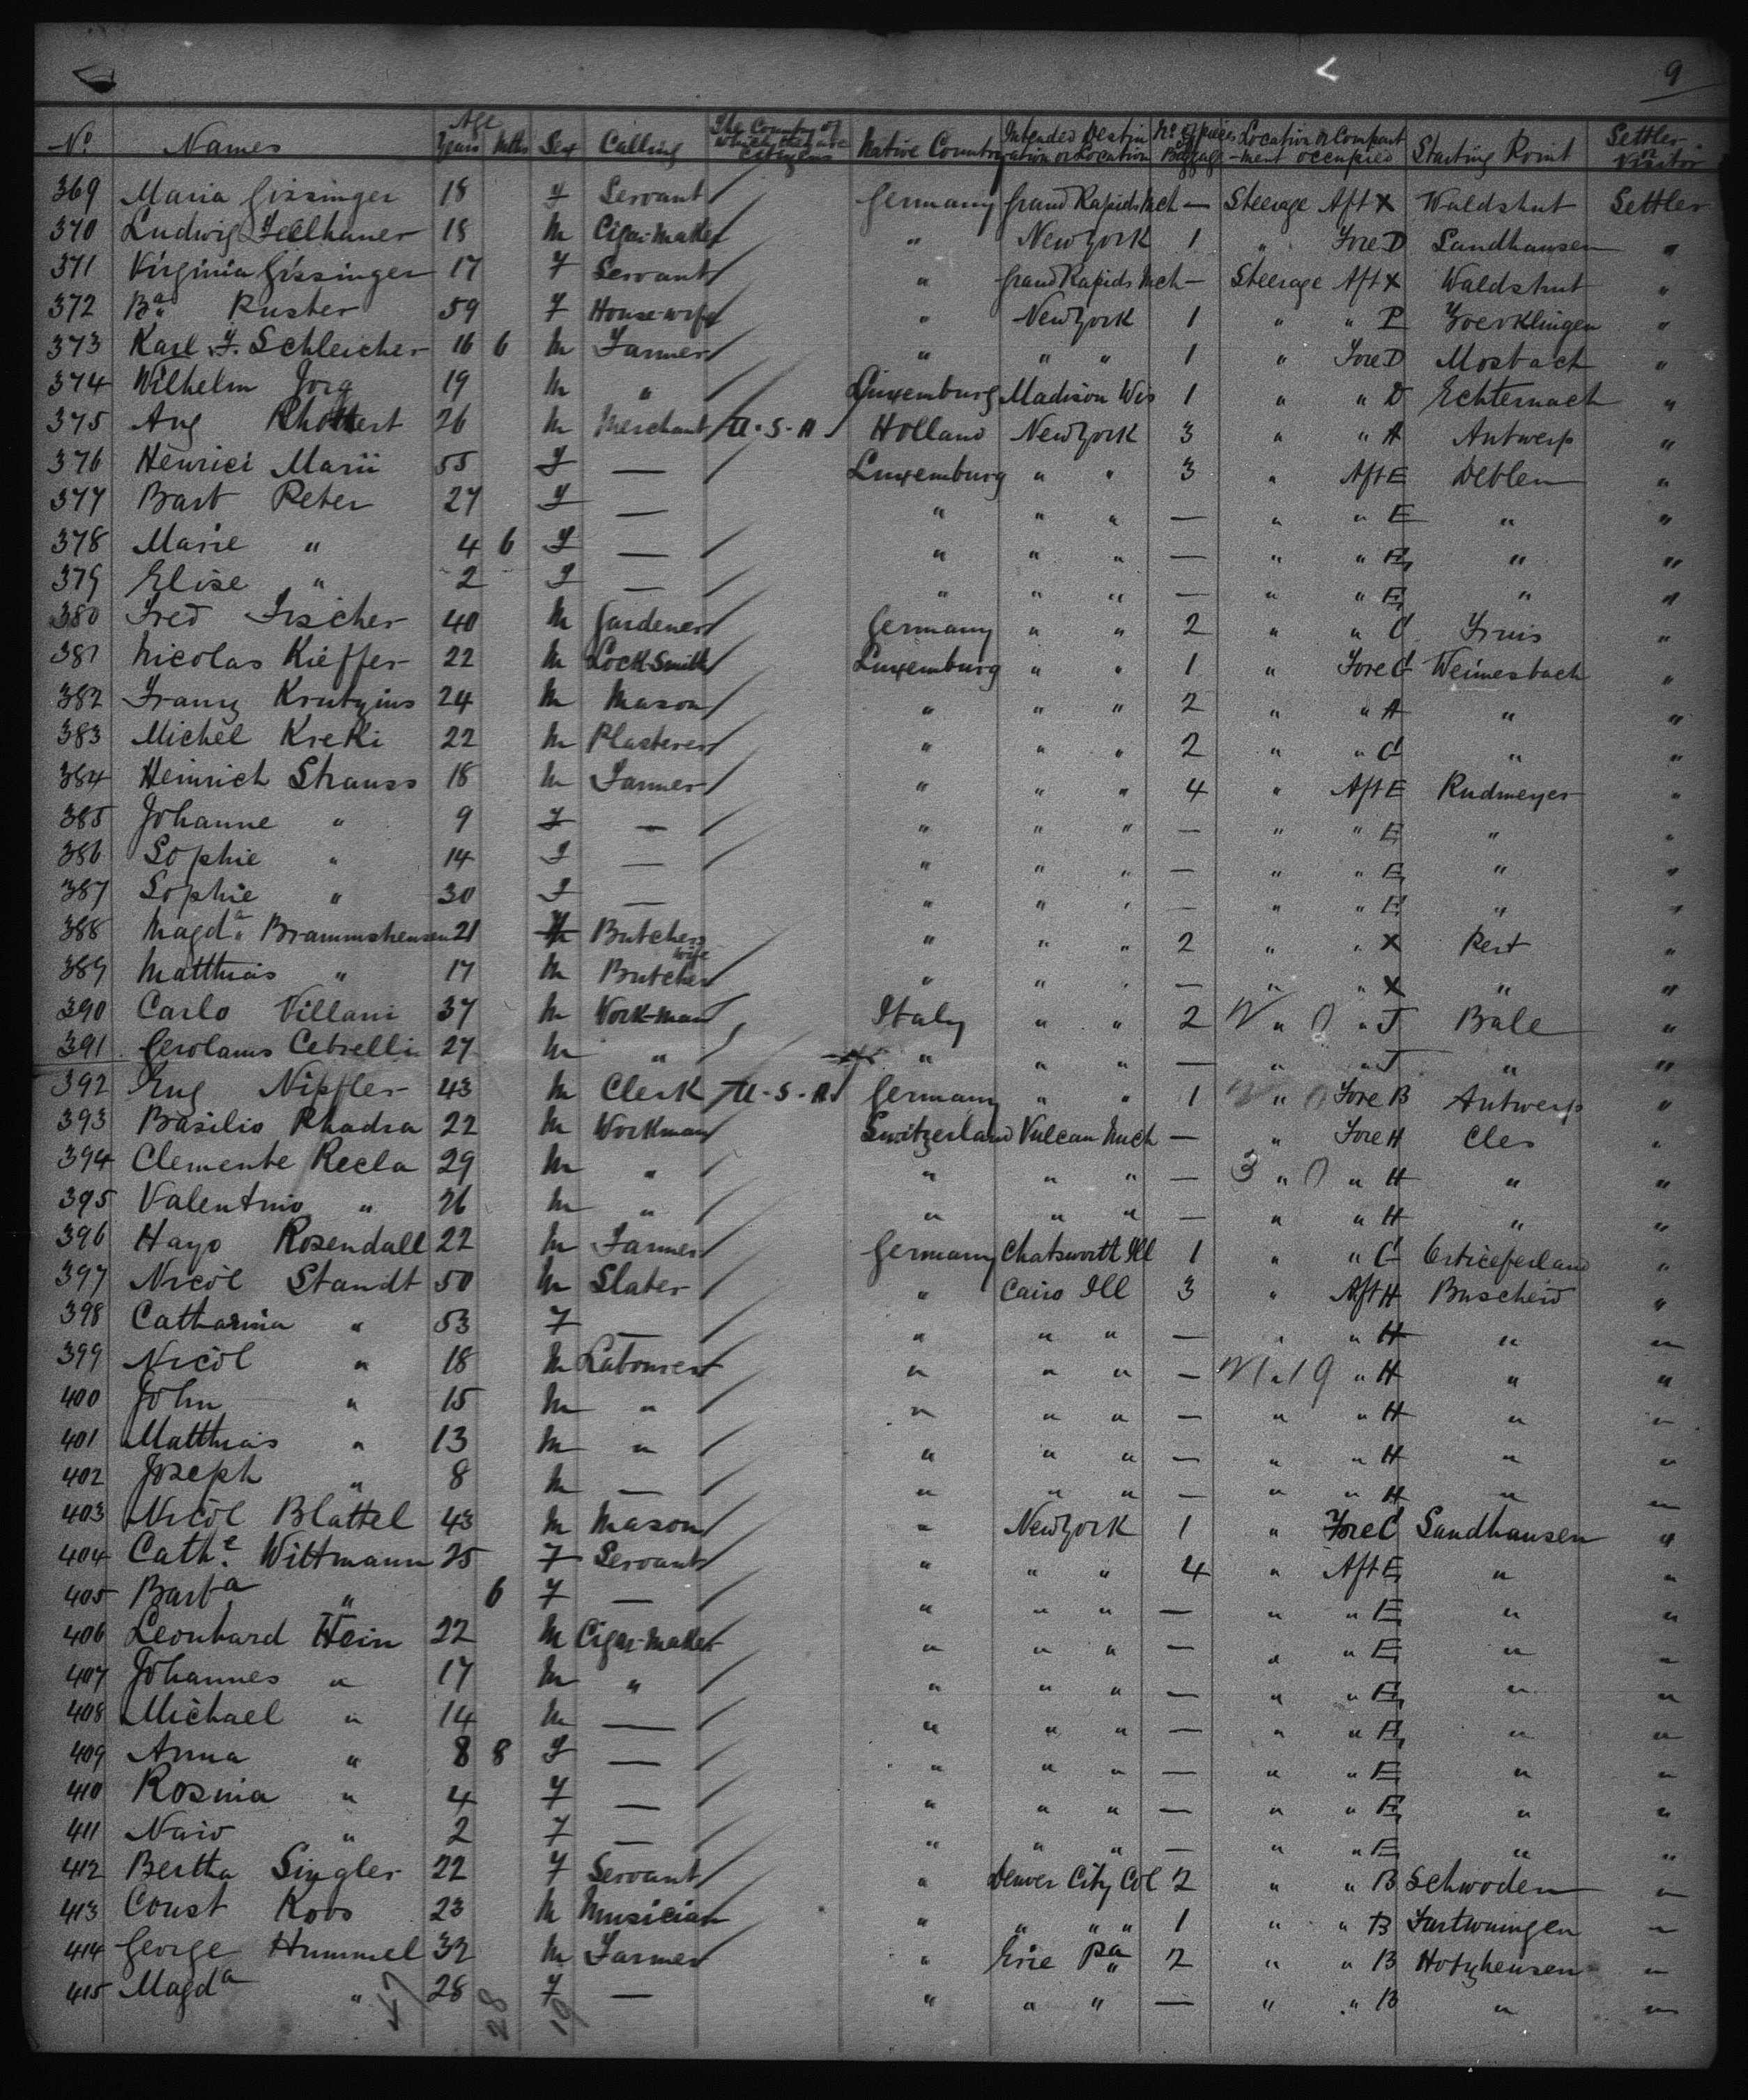 9
No Names Age Years Mths Sex Calling The Country of which they are Citizens Native Country Intended Destination or Location No of pieces Baggage Location or Compartment occupied Starting Point Settler or Visitor
369 Maria Gissinger 18 F Servant / Germany Grand Rapids Mch — Steerage Aft X Waldshut Settler
370 Ludwig Fellhauer 18 M Cigar-maker / " New York 1 " Fore D Sandhausen "
371 Virginia Gissinger 17 F Servant / " Grand Rapids Mch — Steerage Aft X Waldshut "
372 Ba Ruster 59 F House-wife / " New York 1 " " P "
373 Karl F. Schleicher 16 6 M Farmer / " " " 1 " Fore D Mosbach "
374 Wilhelm Jorg 19 M " / Luxemburg Madison Wis 1 " " D Echternach "
375 Aug 26 M Merchant U.S.A Holland New York 3 " " A Antwerp "
376 Henrici Marii 55 F — / Luxemburg " " 3 " Aft E "
377 Bart Peter 27 F — " " " — " " E " "
378 Marie " 4 6 F — / " " " — " " E " "
379 Elise " 2 F — / " " " — " " E " "
380 Fred Fischer 40 M Gardener / Germany " " 2 " " C "
381 Nicolas Kieffer 22 M Lock-Smith / Luxemburg " " 1 " Fore C Weimesbach "
382 Franz Krutzius 24 M Mason / " " " 2 " " A " "
383 Michel Kreki 22 M Plasterer / " " " 2 " " C " "
384 Heinrich Strauss 18 M Farmer / " " " 4 " Aft E Rudmeyer "
385 Johanne " 9 F — / " " " — " " E " "
386 Sophie " 14 F — / " " " — " " E " "
387 Sophie " 30 F — " " " — " " E " "
388 Magda Brammshensen 21 Butchers wife " " " 2 " " X Pert "
389 Matthias " 17 M Butcher / " " " — " " X " "
390 Carlo Villani 37 M Work-man / Italy " " 2 " " J Bale "
391 Gerolamo Cetrelli 27 M " / " " " — " " J " "
392 Eug Nipfler 43 M Clerk U.S.A Germany " " 1 " Fore B Antwerp "
393 Basilio Rhadra 22 M Workman / Switzerland Vulcan Mich — " Fore H Cles "
394 Clemente Recla 29 M " / " " " — 3 " 0 " H " "
395 Valentino " 26 M " / " " " — " " H " "
396 Hayo Rosendall 22 M Farmer / Germany Chatsworth Ill 1 " " C "
397 Nicol Standt 50 M Slater / " Cairo Ill 3 " Aft H Buscheid "
398 Catharina " 53 F — / " " " — " " H " "
399 Nicol " 18 M Labourer / " " " — " " H " "
400 John " 15 M " / " " " — " " H " "
401 Matthias " 13 M " / " " " — " " H " "
402 Joseph " 8 M — / " " " — " " H " "
403 Nicol Blattel 43 M Mason / " New York 1 " Fore C Sandhausen "
404 Cathe Wittmann 25 F Servant / " " " 4 " Aft E " "
405 Barba " 6 F — / " " " — " " E " "
406 Leonhard Hein 22 M Cigar-maker " " " — " " E " "
407 Johannes " 17 M " / " " " — " " E " "
408 Michael " 14 M — / " " " — " " E " "
409 Anna " 8 8 F — / " " " — " " E " "
410 Rosina " 4 F — / " " " — " " E " "
411 " 2 F — / " " " — " " E " "
412 Bertha Singler 22 F Servant / " Denver City Col 2 " " B Schwoden "
413 Const Koos 23 M Musician " " " " 1 " " B Furtwningen "
414 George Hummel 32 M Farmer / " Erie Pa 2 " " B Hotzhensen "
415 Magda " 28 F — " " " — " " B " "
47 28 19